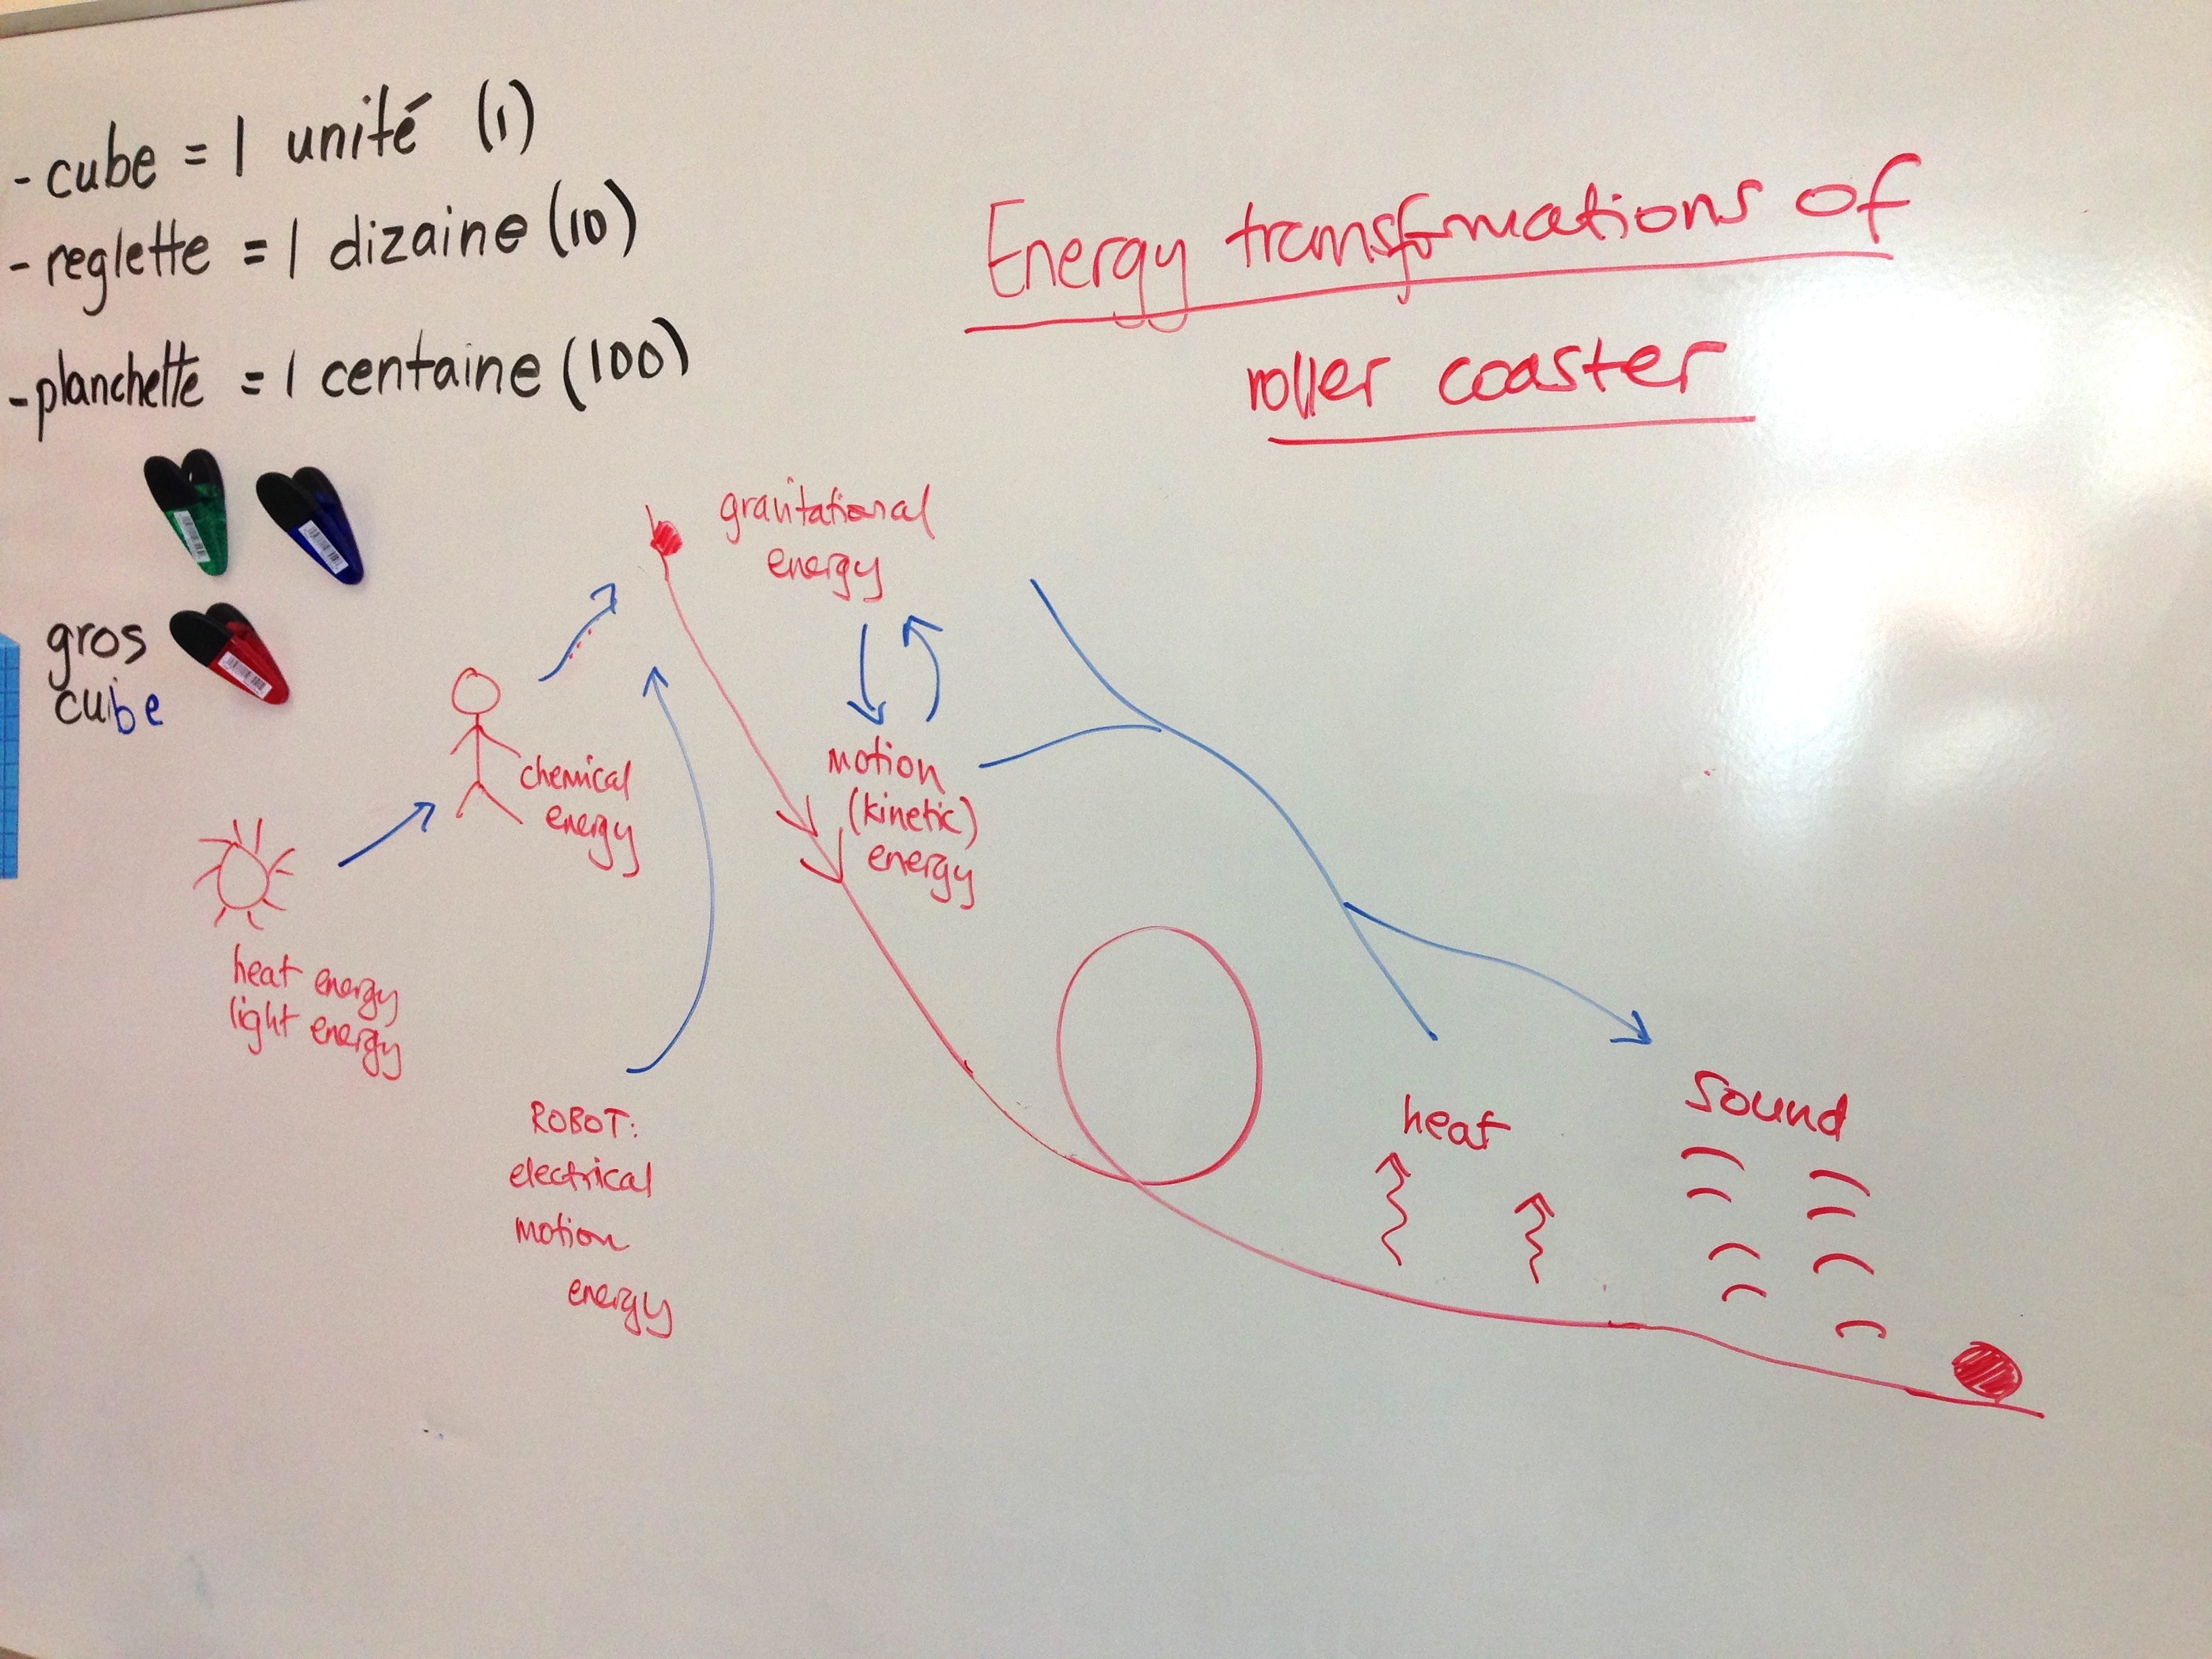 - cube = 1 unité (1)
- reglette = 1 dizaine (10)
- planchette = 1 centaine (100)
gros
cube
Energy transformations of
roller coaster
gravitational
energy
motion
(kinetic)
energy
chemical
energy
heat energy
light energy
ROBOT:
electrical
motion
energy
heat
Sound